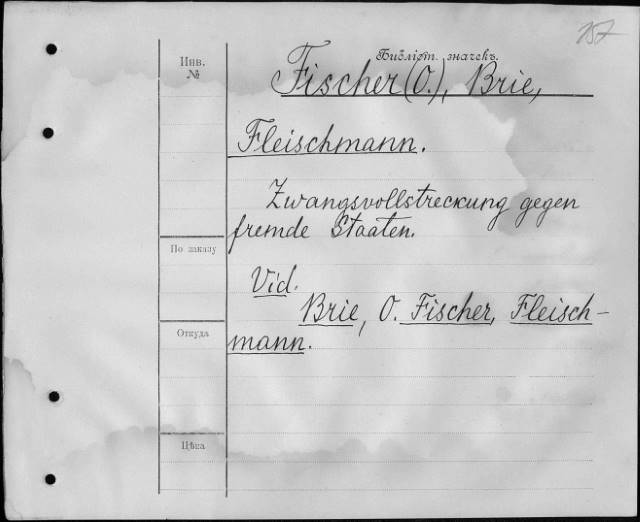 157
Библіот. значекъ.
Инв.
№
Fischer (O.), Brie,
Fleischmann.
Zwangsvollstreckung gegen
fremde Staaten.
По заказу
Vid.
Brie, O. Fischer, Fleisch-
mann.
Откуда
Цѣна